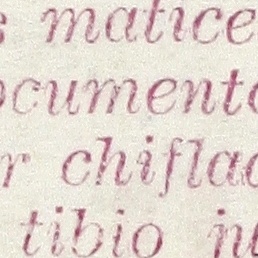 s matice
ocumento
r chiflad
tibio ju